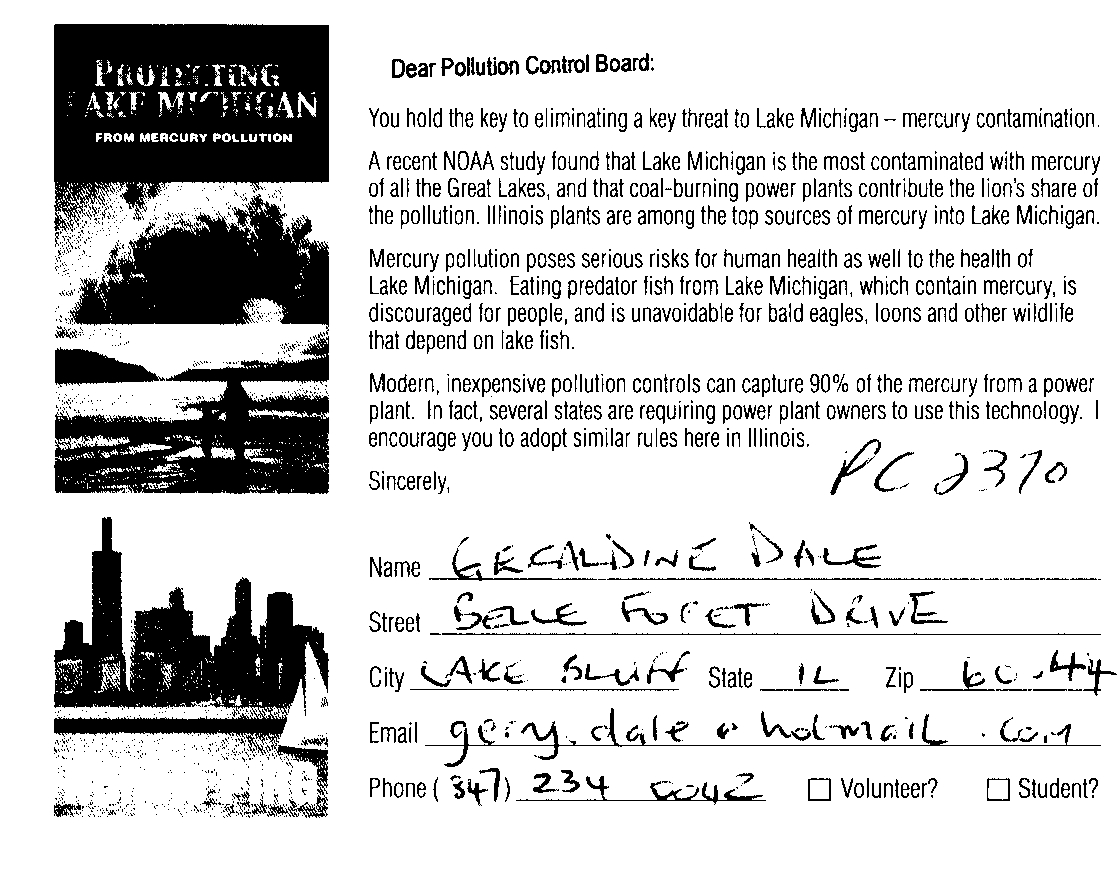 PROTECTING
LAKE MICHIGAN
FROM MERCURY POLLUTION
Dear Pollution Control Board:
You hold the key to eliminating a key threat to Lake Michigan – mercury contamination.
A recent NOAA study found that Lake Michigan is the most contaminated with mercury
of all the Great Lakes, and that coal-burning power plants contribute the lion's share of
the pollution. Illinois plants are among the top sources of mercury into Lake Michigan.
Mercury pollution poses serious risks for human health as well to the health of
Lake Michigan. Eating predator fish from Lake Michigan, which contain mercury, is
discouraged for people, and is unavoidable for bald eagles, loons and other wildlife
that depend on lake fish.
Modern, inexpensive pollution controls can capture 90% of the mercury from a power
plant. In fact, several states are requiring power plant owners to use this technology. I
encourage you to adopt similar rules here in Illinois.
PC 2370
Sincerely,
Name GERALDINE DALE
Street BELLE FORET DRIVE
City LAKE BLUFF State IL Zip
Email @ hotmail .com
Phone (347) 234 0042 Volunteer? Student?